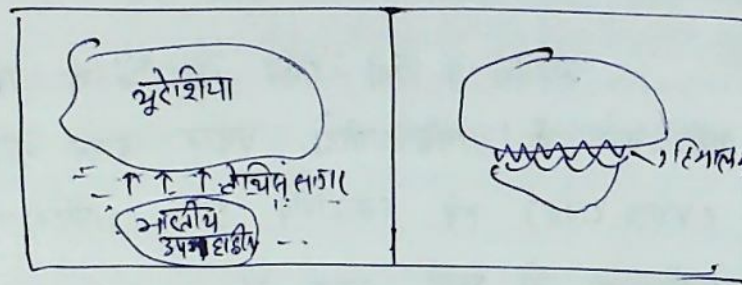 यूरेशिया
टेथिस सागर
भारतीय
उपमहाद्वीप
हिमालय